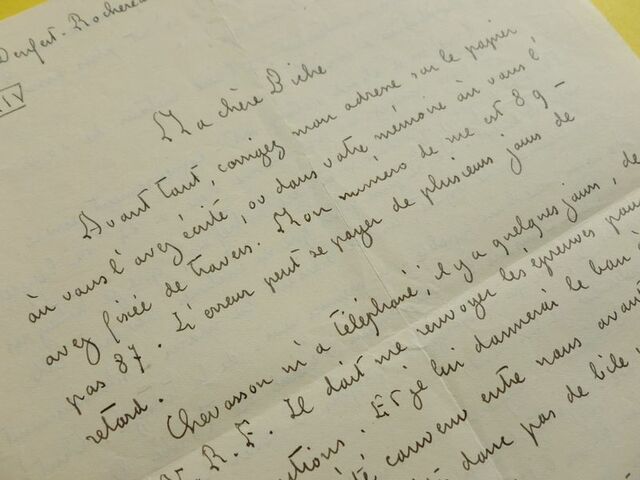 Denfert-Rochereau
XIV
Ma chère Biche
Avant tout, corrigez mon adresse sur le papier
où vous l'avez écrite, ou dans votre mémoire où vous l'
avez fixée de travers. Mon numéro de rue est 89 -
pas 87. L'erreur peut se payer de plusieurs jours de
retard.
Chevasson m'a téléphoné, il y a quelques jours, de
N. R. F. Il doit me renvoyer les épreuves pour
Et je lui donnerai le bon à
convenu entre nous avant
donc pas de bile